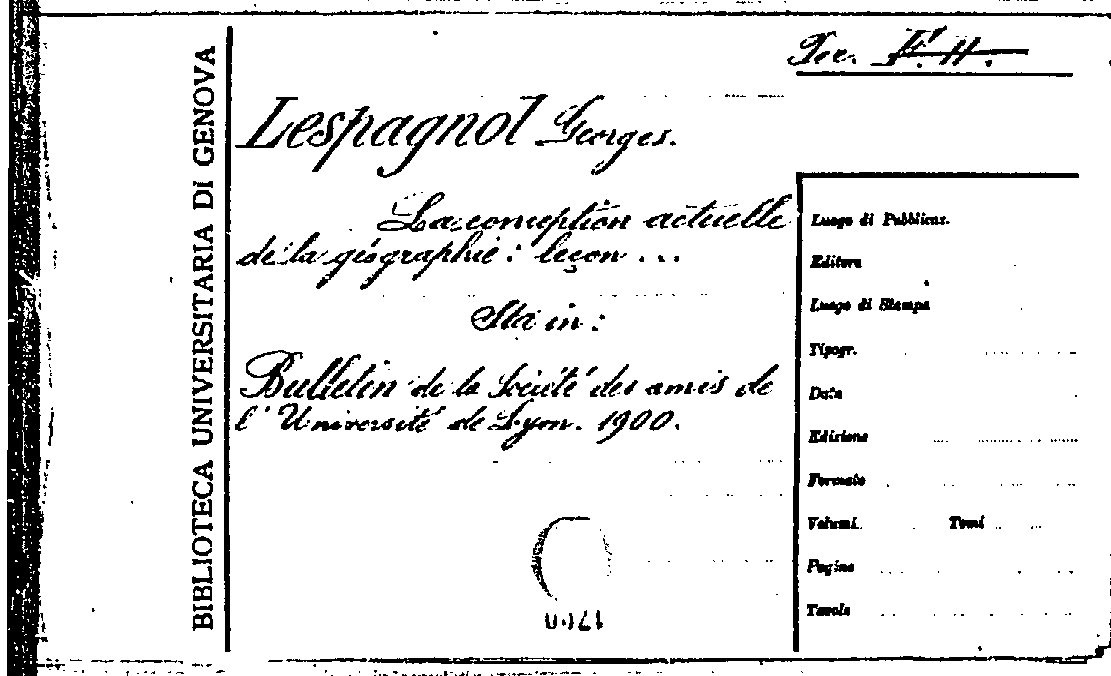 BIBLIOTECA UNIVERSITARIA DI GENOVA
Lespagnol Georges.
La conception actuelle
de la géographie : leçon ...
Sta in :
Bulletin de la Société des amis de
l'Université de Lyon. 1900.
Luogo di Pubblicaz.
Editore
Luogo di Stampa
Tipogr.
Data
Edizione
Formato
Volumi Tomi
Pagine
Tavole